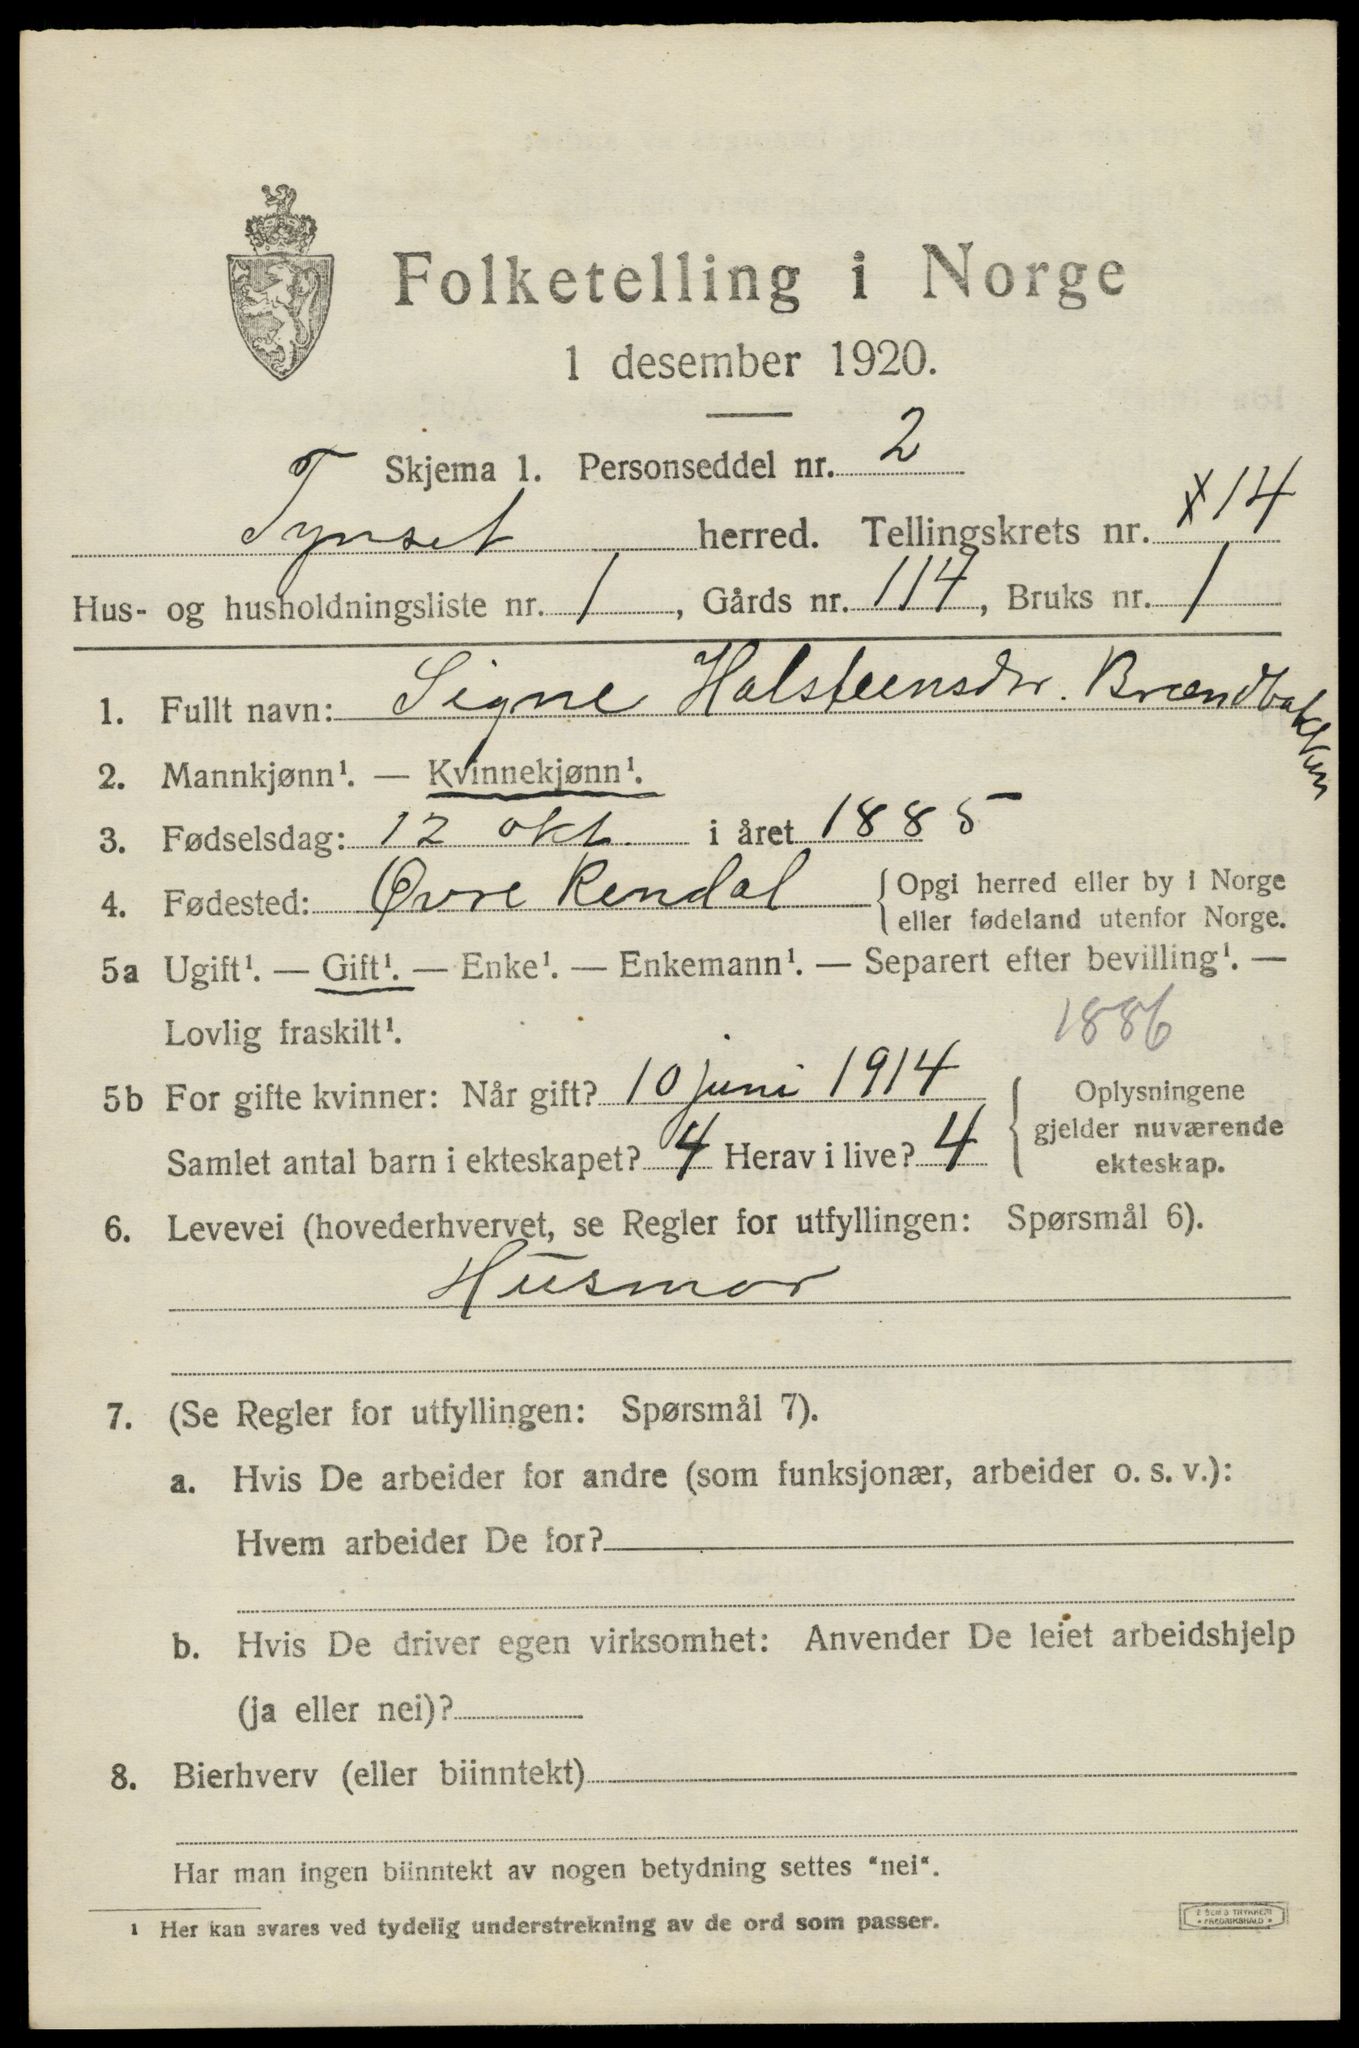 Folketelling i Norge
1 desember 1920.
Skjema 1. Personseddel nr. 2
Tynset herred. Tellingskrets nr. x 14
Hus- og husholdningsliste nr. 1, Gårds nr. 114, Bruks nr. 1
1. Fullt navn: Signe Halsteensdtr. Brændbakken
2. Mannkjønn¹. — Kvinnekjønn¹.
3. Fødselsdag: 12 okt. i året 1885
4. Fødested: Øvre Rendal { Opgi herred eller by i Norge
eller fødeland utenfor Norge.
5a Ugift¹. — Gift¹. — Enke¹. — Enkemann¹. — Separert efter bevilling¹. —
Lovlig fraskilt¹.
1886
5b For gifte kvinner: Når gift? 10 juni 1914
Samlet antal barn i ekteskapet? 4 Herav i live? 4
{ Oplysningene
gjelder nuværende
ekteskap.
6. Levevei (hovederhvervet, se Regler for utfyllingen: Spørsmål 6).
Husmor
7. (Se Regler for utfyllingen: Spørsmål 7).
a. Hvis De arbeider for andre (som funksjonær, arbeider o. s. v.):
Hvem arbeider De for?
b. Hvis De driver egen virksomhet: Anvender De leiet arbeidshjelp
(ja eller nei)?
8. Bierhverv (eller biinntekt)
Har man ingen biinntekt av nogen betydning settes "nei".
1 Her kan svares ved tydelig understrekning av de ord som passer.
TRYKKERI
* FREDRIKSHALD *